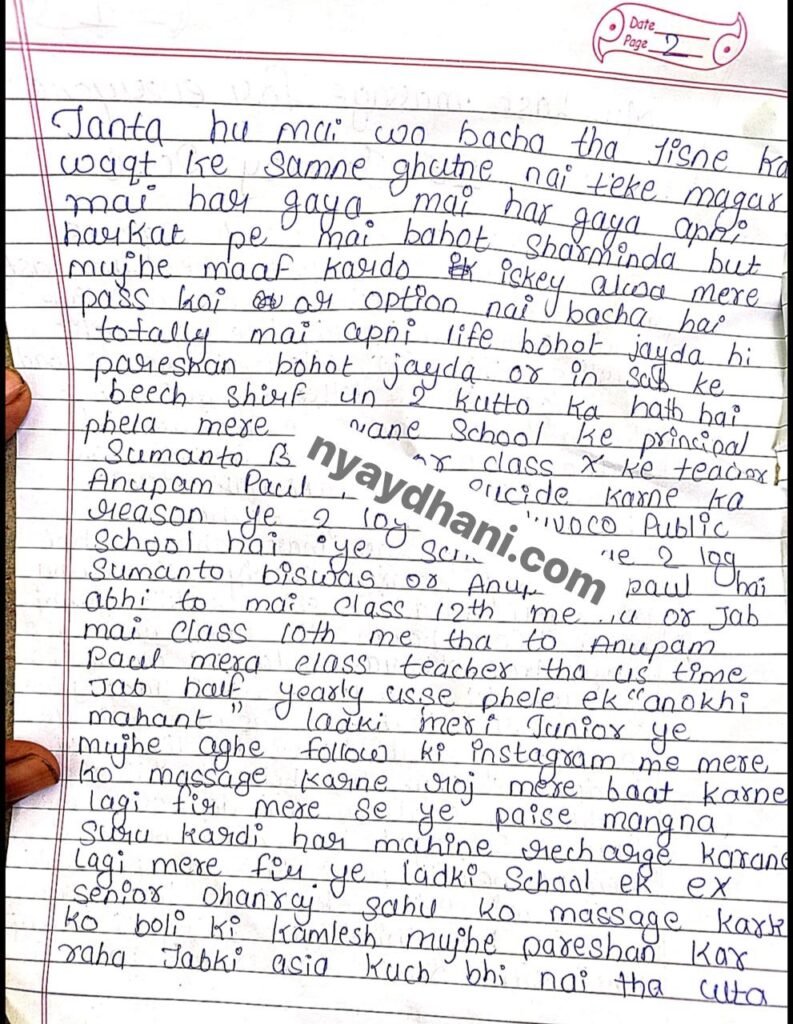 Date
Page 2
Janta hu mai wo bacha tha Jisne ka
waqt ke samne ghutne nai teke magar
mai har gaya mai har gaya apni
harkat pe mai bahot sharminda but
mujhe maaf kardo iskey alwa mere
pass koi or option nai bacha hai
totally mai apni life bohot jayda hi
pareshan bohot jayda or in sab ke
beech shirf un 2 kutto ka hath hai
phela mere School ke principal
Sumanto B class X ke teacher
Anupam Paul karne ka
reason ye 2 log Public
School hai ye 2 log
Sumanto biswas or paul hai
abhi to mai class 12th me or Jab
mai class 10th me tha to Anupam
Paul mera class teacher tha us time
Jab half yearly usse phele ek "anokhi
mahant" ladki meri Junior ye
mujhe aghe follow ki instagram me mere
ko massage karne roj mere baat karne
lagi fir mere se ye paise mangna
suru kardi har mahine recharge karane
lagi mere fir ye ladki School ek ex
senior Dhanraj sahu ko massage kark
ko boli ki kamlesh mujhe pareshan kar
raha Jabki asia kuch bhi nai tha ulta
nyaydhani.com